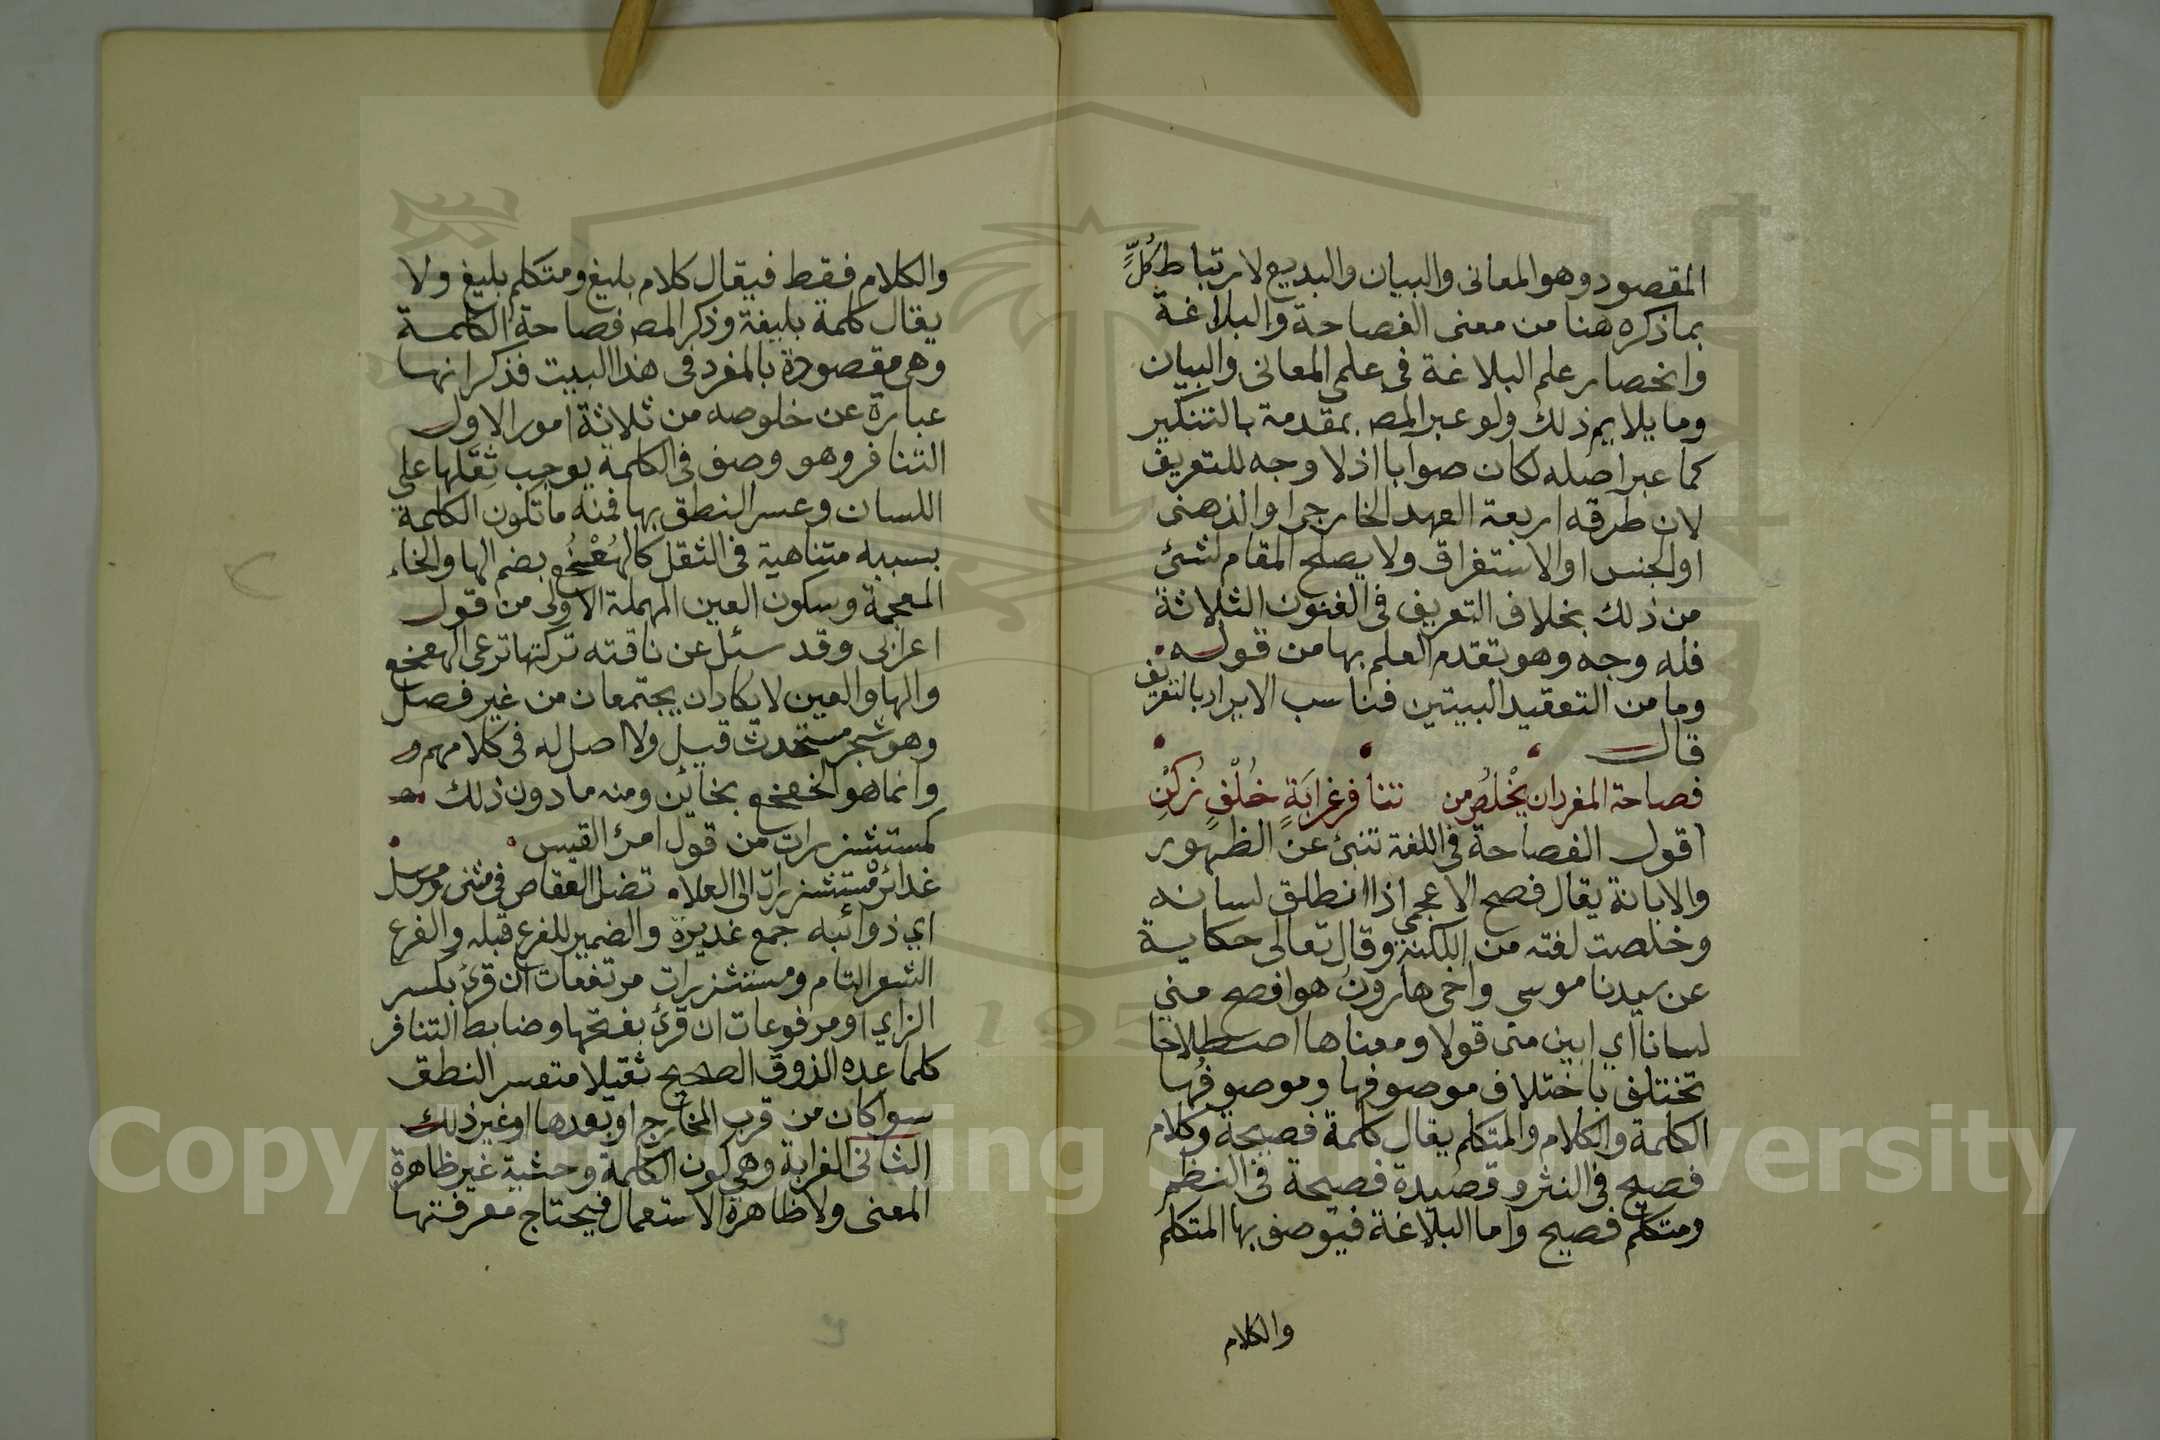 المقصود وهو المعانى والبيان والبديع لارتباط كُلٍّ
بما ذكره هنا من معنى الفصاحة والبلاغة
وانحصار علم البلاغة فى علمي المعانى والبيان
وما يلايم ذلك ولو عبر المص بمقدمة بالتنكير
كما عبر اصله لكان صوابا اذ لا وجه للتعريف
لان طرقه اربعة العهد الخارجي او الذهنى
او الجنس او الاستغراق ولا يصلح المقام لشئ
من ذلك بخلاف التعريف فى الفنون الثلاثة
فله وجه وهو تقدم العلم بها من قوله
وما من التعقيد البيتين فناسب الايراد بالتعريف
قال
فصاحة المفرد ان يَخْلُصَ من تنافر غرابَةٍ خُلْفٍ زُكِنْ
اقول الفصاحة فى اللغة تنبئ عن الظهور
والابانة يقال فصح الاعجمي اذا انطلق لسانه
وخلصت لغته من اللكنة وقال تعالى حكاية
عن سيدنا موسى واخى هارون هو افصح مني
لسانا اي ابين منى قولا ومعناها اصطلاحا
تختلف باختلاف موصوفها وموصوفها
الكلمة والكلام والمتكلم يقال كلمة فصيحة وكلام
فصيح فى النثر وقصيدة فصيحة فى النظم
ومتكلم فصيح واما البلاغة فيوصف بها المتكلم
والكلام
والكلام فقط فيقال كلام بليغ ومتكلم بليغ ولا
يقال كلمة بليغة وذكر المص فصاحة الكلمة
وهى مقصودة بالمفرد فى هذا البيت فذكر انها
عبارة عن خلوصه من ثلاثة امور الاول
التنافر وهو وصف فى الكلمة يوجب ثقلها علي
اللسان وعسر النطق بها فمنه ما تكون الكلمة
بسببه متناهية فى الثقل كالهُعْخُع بضم الها والخاء
المعجمة وسكون العين المهملة الاولى من قول
اعرابى وقد سئل عن ناقته تركتها ترعى الهعخع
والها والعين لا يكادان يجتمعان من غير فصل
وهو شجر مستحدث قيل ولا اصل له فى كلامهم و
وانما هو الخعخع بخائين ومنه ما دون ذلك
كمستشزرات من قول امرئ القيس
غدائره مستشزرات الى العلا تضل العقاص فى مثنى ومرسل
اي ذوائبه جمع غديرة والضمير للفرع قبله والفرع
الشعر التام ومستشزرات مرتفعات ان قرئ بكسر
الزاي او مرفوعات ان قرئ بفتحها وضابط التنافر
كلما عده الذوق الصحيح ثقيلا متعسر النطق
سواكان من قرب المخارج او بعدها او غير ذلك
الثانى الغرابة وهي كون الكلمة وحشية غير ظاهرة
المعنى ولا ظاهرة الاستعمال فيحتاج معرفتها